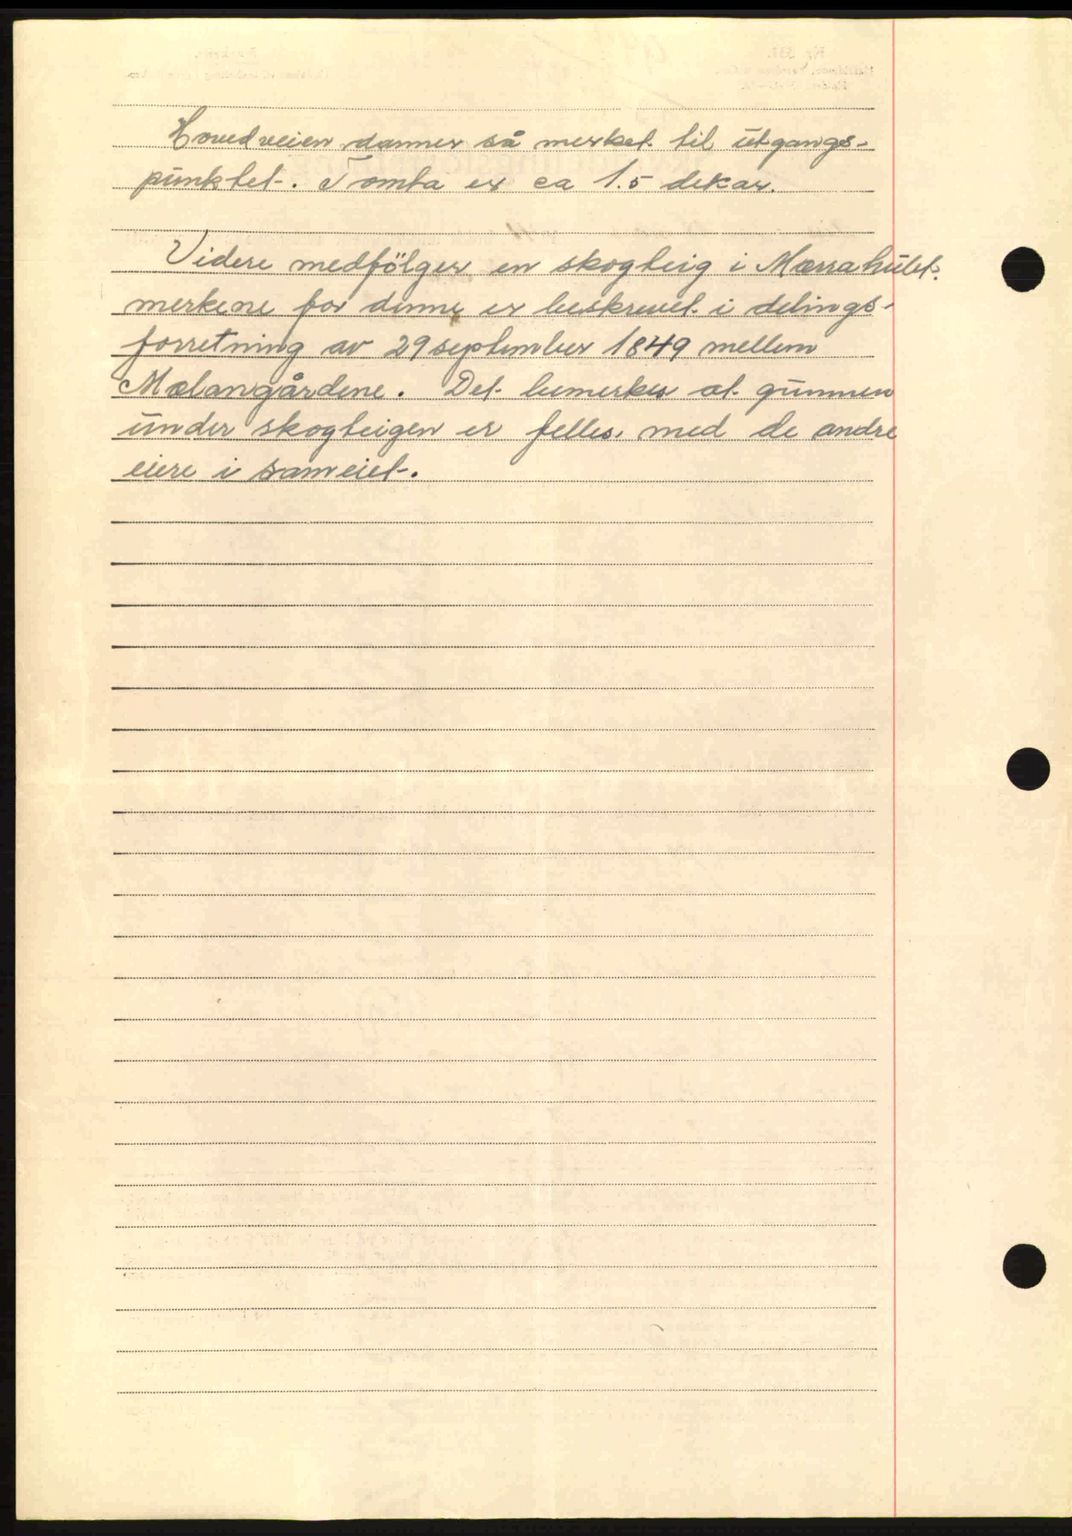 Hovedveien danner så merket til utgangs-
punktet. Tomta er ca 1.5 dekar.
Videre medfölger en skogteig i Mærraholet.
merkene for denne er beskrevet i delings-
forretning av 29 september 1849 mellem
Mælangårdene. Det bemerkes at grunnen
under skogteigen er felles med de andre
eiere i sameiet.